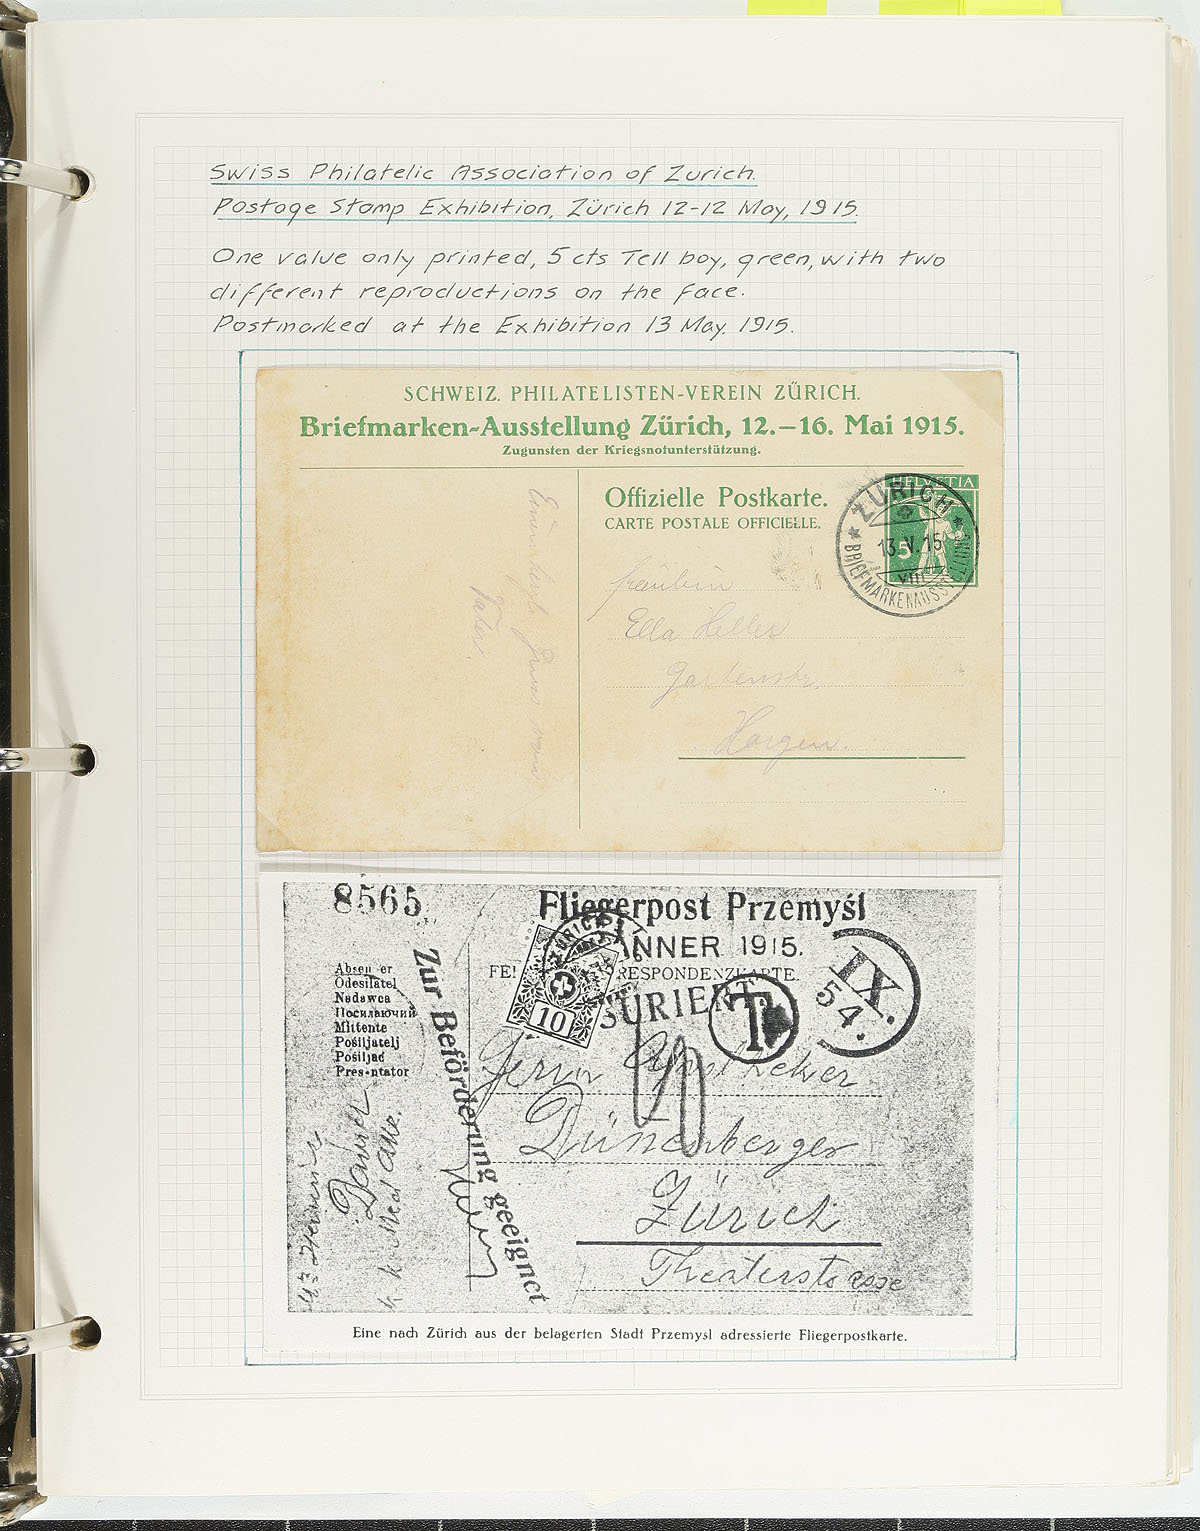 Swiss Philatelic Association of Zurich.
Postage Stamp Exhibition, Zürich 12-12 May, 1915.
One value only printed, 5 cts Tell boy, green, with two
different reproductions on the face.
Postmarked at the Exhibition 13 May. 1915.
SCHWEIZ. PHILATELISTEN-VEREIN ZÜRICH.
Briefmarken-Ausstellung Zürich, 12.–16. Mai 1915.
Zugunsten der Kriegsnotunterstützung.
Offizielle Postkarte.
CARTE POSTALE OFFICIELLE.
HELVETIA
5
ZÜRICH
13.V.15
VIII
BRIEFMARKENAUSSTELLUNG
Fräulein
Ella Heller
Gartenstr.
Horgen.
Gruss vom
Vater.
8565
Fliegerpost Przemyśl
JÄNNER 1915.
RESPONDENZKARTE.
ZURICH
10
T
IX.
54.
Absen er
Odesílatel
Nadawca
Посилаючий
Mittente
Pošiljatelj
Pošiljač
Pres·ntator
Zur Beförderung geeignet
Herrn Apotheker
Dünenberger
Zürich
Theaterstrasse
Eine nach Zürich aus der belagerten Stadt Przemysl adressierte Fliegerpostkarte.